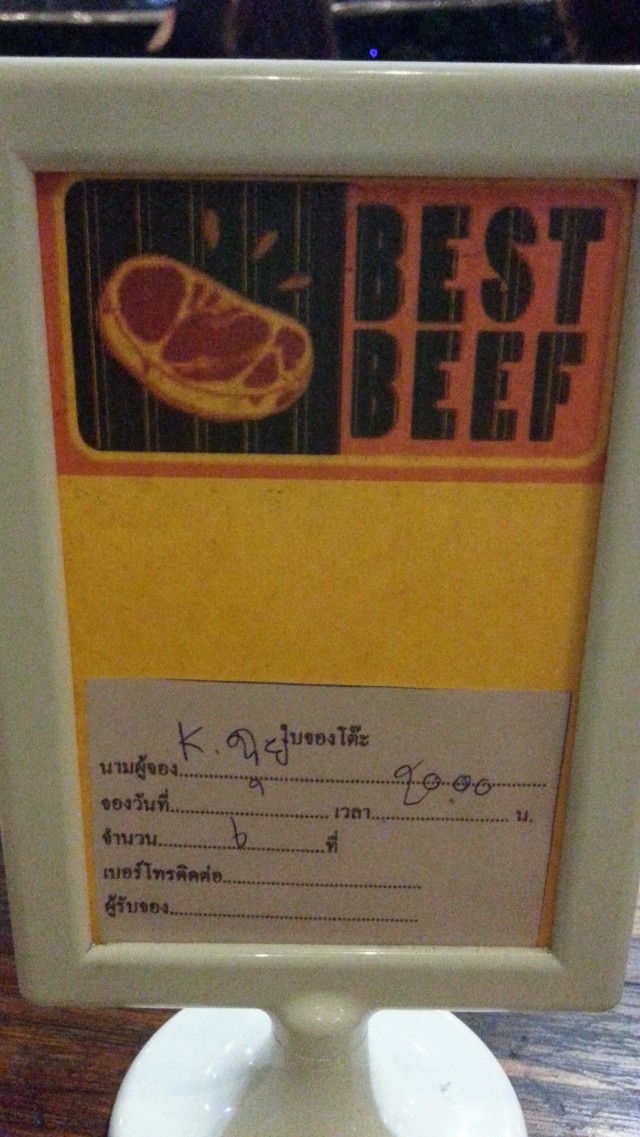 BEST
BEEF
ใบจองโต๊ะ
นามผู้จอง K.
จองวันที่ เวลา 20.00 น.
จำนวน 6 ที่
เบอร์โทรติดต่อ
ผู้รับจอง